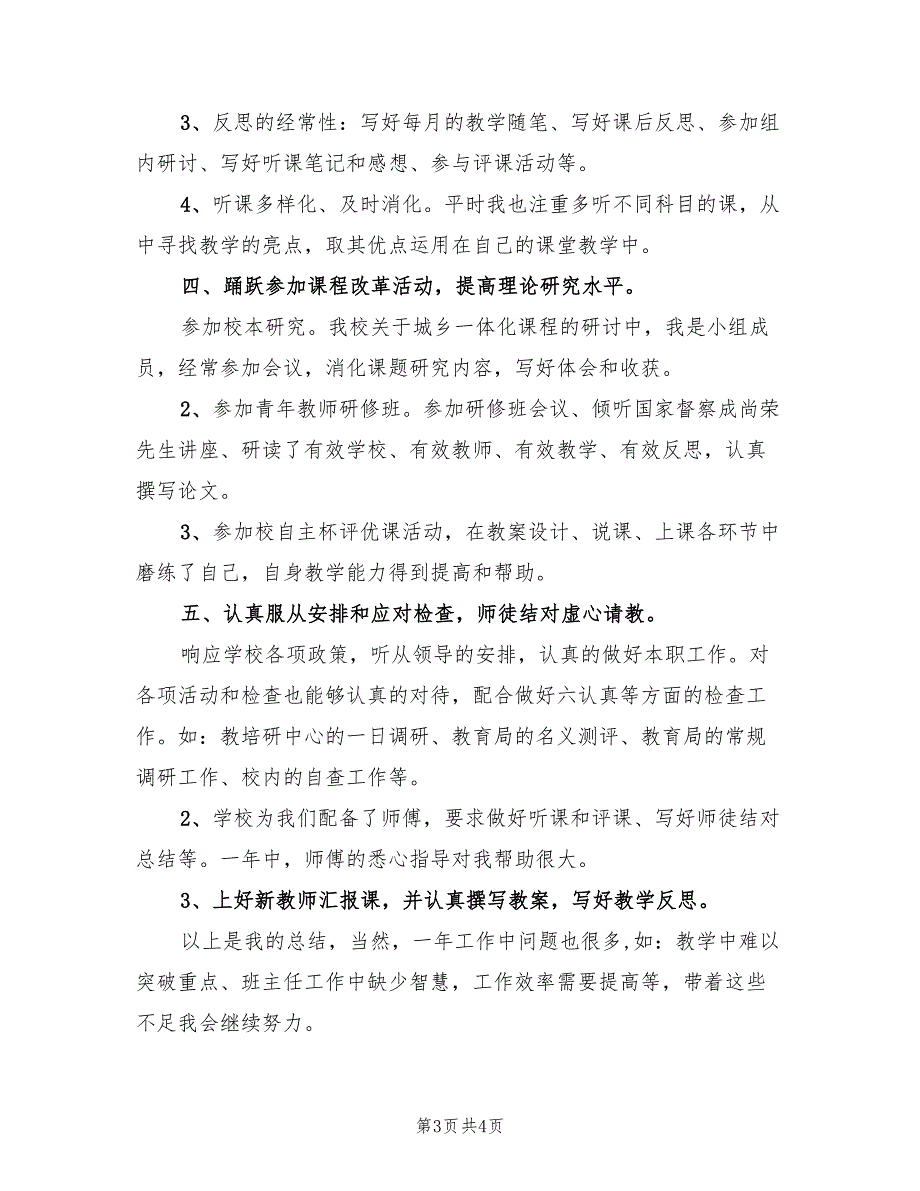 3、反思的经常性：写好每月的教学随笔、写好课后反思、参加组
内研讨、写好听课笔记和感想、参与评课活动等。
4、听课多样化、及时消化。平时我也注重多听不同科目的课，从
中寻找教学的亮点，取其优点运用在自己的课堂教学中。
四、踊跃参加课程改革活动，提高理论研究水平。
参加校本研究。我校关于城乡一体化课程的研讨中，我是小组成
员，经常参加会议，消化课题研究内容，写好体会和收获。
2、参加青年教师研修班。参加研修班会议、倾听国家督察成尚荣
先生讲座、研读了有效学校、有效教师、有效教学、有效反思，认真
撰写论文。
3、参加校自主杯评优课活动，在教案设计、说课、上课各环节中
磨练了自己，自身教学能力得到提高和帮助。
五、认真服从安排和应对检查，师徒结对虚心请教。
响应学校各项政策，听从领导的安排，认真的做好本职工作。对
各项活动和检查也能够认真的对待，配合做好六认真等方面的检查工
作。如：教培研中心的一日调研、教育局的名义测评、教育局的常规
调研工作、校内的自查工作等。
2、学校为我们配备了师傅，要求做好听课和评课、写好师徒结对
总结等。一年中，师傅的悉心指导对我帮助很大。
3、上好新教师汇报课，并认真撰写教案，写好教学反思。
以上是我的总结，当然，一年工作中问题也很多,如：教学中难以
突破重点、班主任工作中缺少智慧，工作效率需要提高等，带着这些
不足我会继续努力。
第3页共4页